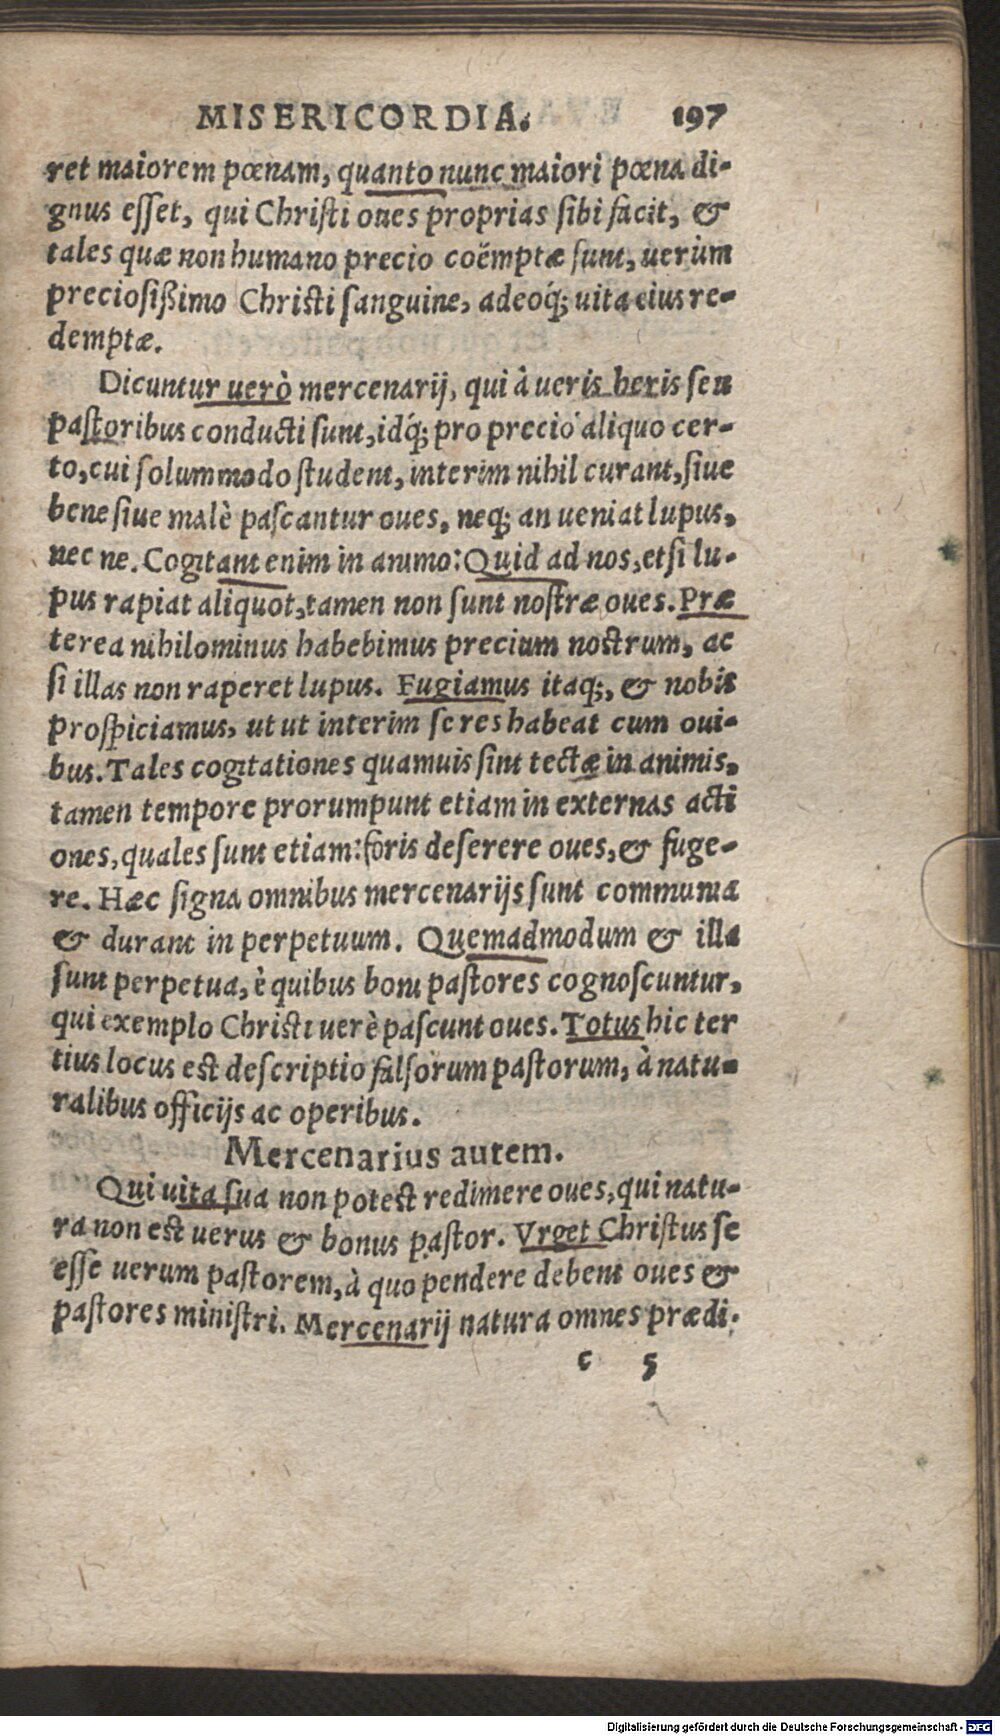 MISERICORDIA. 197
ret maiorem pœnam, quanto nunc maiori pœna di-
gnus esset, qui Christi oues proprias sibi facit, &
tales quæ non humano precio coëmptæ sunt, uerùm
preciosißimo Christi sanguine, adeoq́; uita eius re-
demptæ.
Dicuntur uerò mercenarij, qui à ueris heris seu
pastoribus conducti sunt, idq́; pro precio aliquo cer-
to, cui solummodo student, interim nihil curant, siue
bene siue malè pascantur oues, neq; an ueniat lupus,
nec ne. Cogitant enim in animo: Quid ad nos, etsi lu-
pus rapiat aliquot, tamen non sunt nostræ oues. Præ
terea nihilominus habebimus precium nostrum, ac
si illas non raperet lupus. Fugiamus itaq;, & nobis
prospiciamus, ut ut interim se res habeat cum oui-
bus. Tales cogitationes quamuis sint tectæ in animis,
tamen tempore prorumpunt etiam in externas acti
ones, quales sunt etiam: foris deserere oues, & fuge-
re. Hæc signa omnibus mercenarijs sunt communia
& durant in perpetuum. Quemadmodum & illa
sunt perpetua, è quibus boni pastores cognoscuntur,
qui exemplo Christi uerè pascunt oues. Totus hic ter
tius locus est descriptio falsorum pastorum, à natu-
ralibus officijs ac operibus.
Mercenarius autem.
Qui uita sua non potest redimere oues, qui natu-
ra non est uerus & bonus pastor. Vrget Christus se
esse uerum pastorem, à quo pendere debent oues &
pastores ministri. Mercenarij natura omnes prædi-
c 5
Digitalisierung gefördert durch die Deutsche Forschungsgemeinschaft - DFG